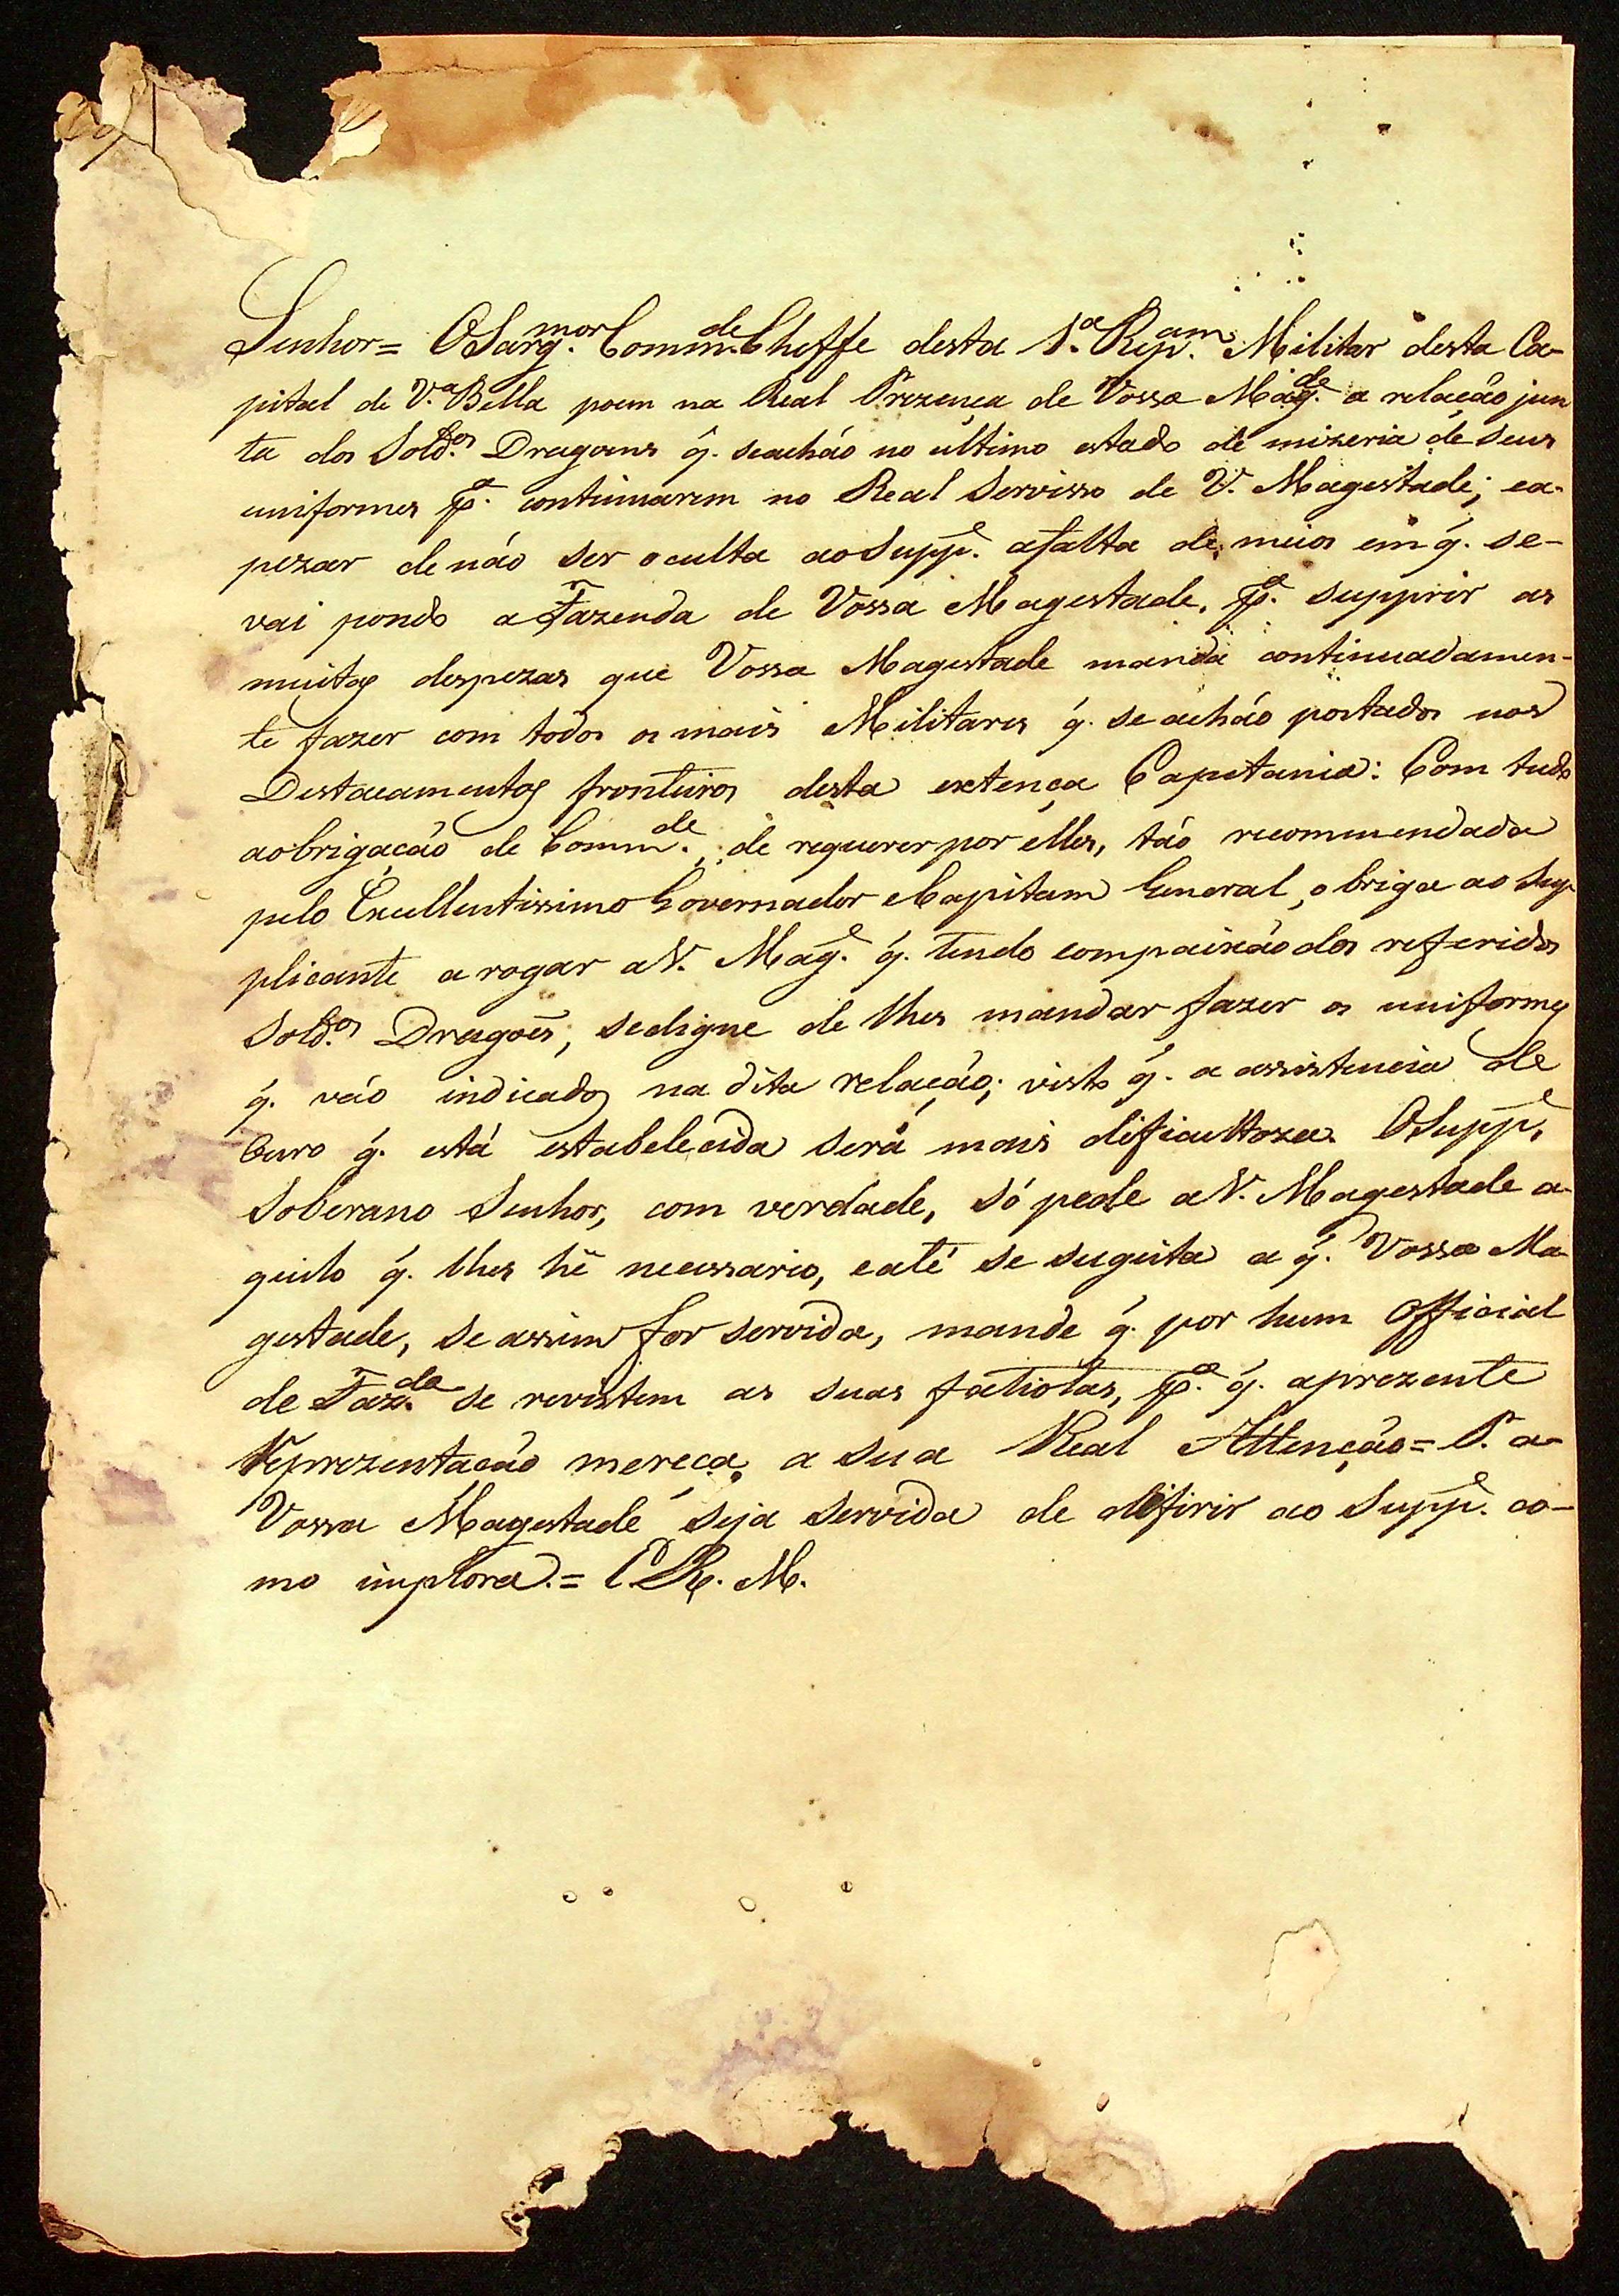 Senhor = OSarg.mor Comm.de Cheffe desta 1.ª Rep.am Militar desta Ca-
pital de V.ª Bella poem na Real Prezença de Vossa Mag.de a relação jun
ta dos Sold.os Dragoens q̃. seachão no ultimo estado de mizeria de seus
uniformes p.ª continuarem no Real Servisso de V. Magestade; ea-
pezar de não ser oculta aoSupp.e afalta de meios em q̃. se-
vai pondo a Fazenda de Vossa Magestade, p.ª supprir as
muitas despezas que Vossa Magestade manda continuadamen-
te fazer com todos os mais Militares q̃. se achão postados nos
Destacamentos fronteiros desta extença Capitania: Com tudo
aobrigação de Comm.de, de requerer por elles, tão recommendada
pelo Excellentissimo Governador eCapitam General, obriga ao Sup
plicante a rogar aV. Mag.e q̃. tendo compaixão dos referidos
Sold.os Dragoẽs, sedigne de lhes mandar fazer os uniformes
q̃. vão indicados na dita relação; visto q̃. a assistencia de
Ouro q̃. está estabelecida será mais dificultoza. OSupp.e
Soberano Senhor, com verdade, só pede aV. Magestade a-
quilo q̃. lhes hé necessario, eaté se sugeita a q̃. Vossa Ma-
gestade, se assim for servida, mande q̃. por hum Official
de Faz.da se revistem as suas fatiotas, p.ª q̃. aprezente
Reprezentação mereça, a sua Real Attenção = P. a-
Vossa Magestade seja servida de difirir ao Supp.e co-
mo implora. = E. R. M.